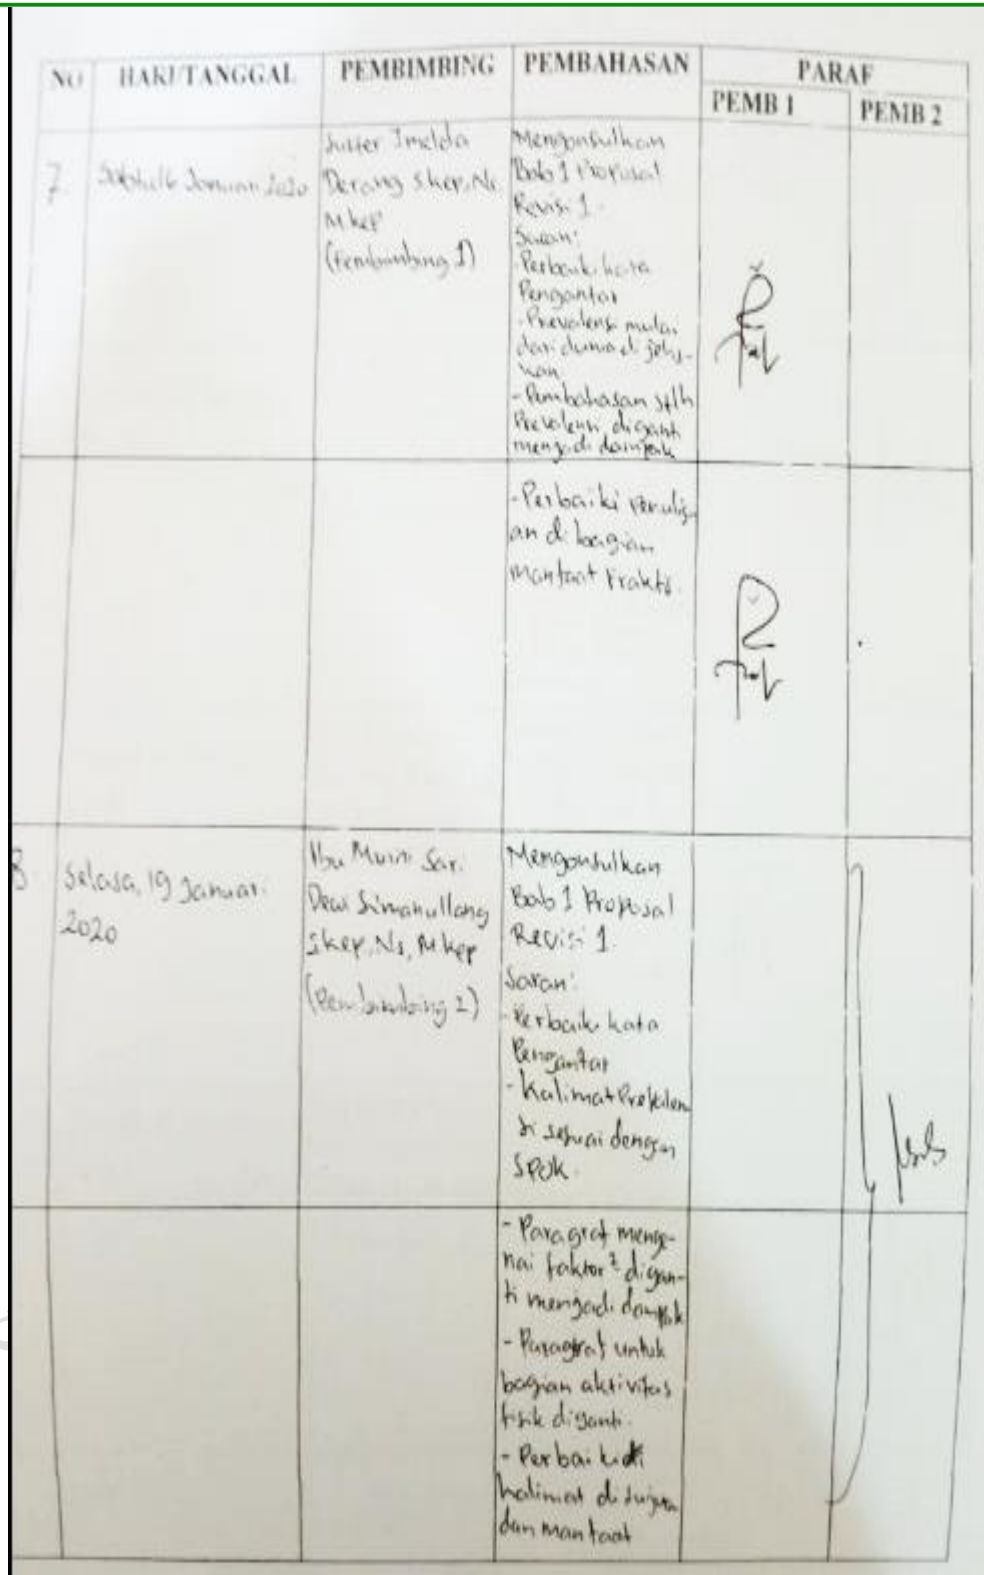 NO HARI/TANGGAL PEMBIMBING PEMBAHASAN PARAF
PEMB 1 PEMB 2
7. Januari 2020
Suster Imelda
Derang Skep, Ns
Mkep
(Pembimbing 1)
Mengonsulkan
Bab 1 Proposal
Revisi 1.
Saran:
- Perbaiki kata
Pengantar
- Prevalensi mulai
dari dunia di jelas-
kan
- Pembahasan stlh
Prevalensi diganti
menjadi dampak
- Perbaiki Penulis-
an di bagian
manfaat Praktis.
8. Selasa, 19 Januari
2020
Ibu Murni Sari
Dewi Simanullang
Skep, Ns, Mkep
(Pembimbing 2)
Mengonsulkan
Bab 1 Proposal
Revisi 1.
Saran:
- Perbaiki kata
Pengantar
- Kalimat Prevalen
si sesuai dengan
SPOK.
- Paragraf menge-
nai faktor² digan-
ti menjadi dampak
- Paragraf untuk
bagian aktivitas
fisik diganti.
- Perbaiki
kalimat di tujuan
dan manfaat